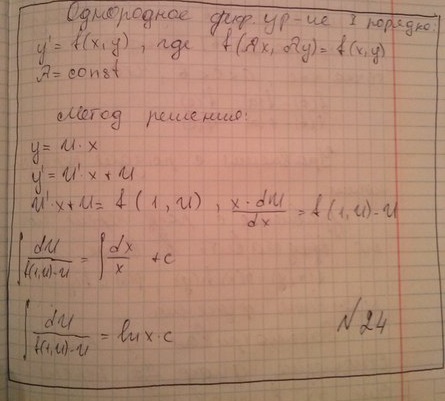 Однородное диф. ур-ие I порядка:
y' = f(x,y), где f(λx, λy) = f(x,y)
λ = const
Метод решения:
y = u·x
y' = u'·x + u
u'·x + u = f(1,u), x·du/dx = f(1,u) - u
∫ du/(f(1,u)-u) = ∫ dx/x + c
∫ du/(f(1,u)-u) = ln x·c
№24